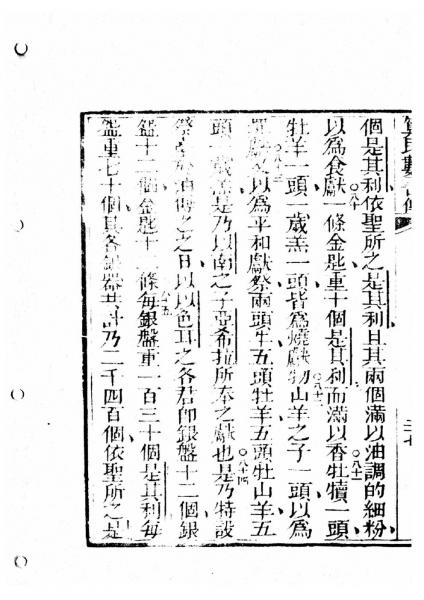 算民數 書
二十七
個是其利依聖所之是其利且其兩個滿以油調的細粉
以爲食獻○八十一條金匙重十個是其利而滿以香○八十一牡犢一頭
牡羊一頭一歲羔一頭皆爲燒獻物○八十二山羊之子一頭以爲
罪獻○八十三又以爲平和獻祭兩頭牛五頭牡羊五頭牡山羊五
頭一歲羔是乃以南之子亞希拉所奉之獻也○八十四是乃特設
祭臺於油傅之之日以以色耳之各君即銀盤十二個銀
鉢十二個金匙十二條○八十五每銀盤重一百三十個是其利每
鉢重七十個其各銀器共計乃二千四百個依聖所之是